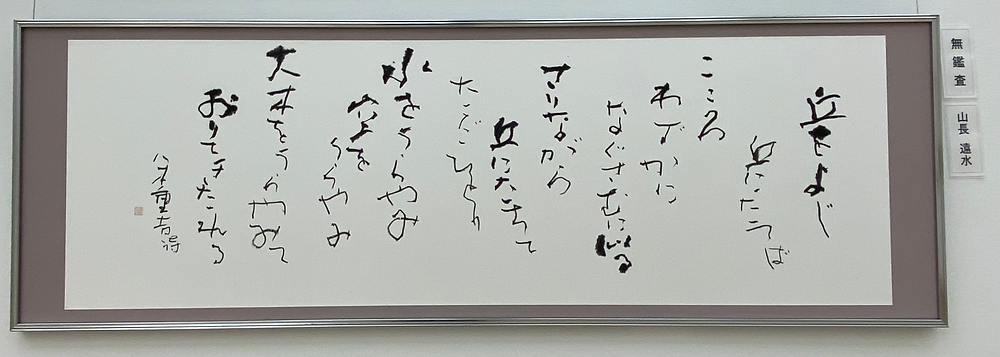 丘をよじ
丘にたてば
こころ
わずかに
なぐさむに似る
さりながら
丘にたちて
ただひとり
水をうらやみ
空を
うらやみ
大木をうらやみて
おりてきたれる
八木重吉詩
無鑑査
山長 遠水